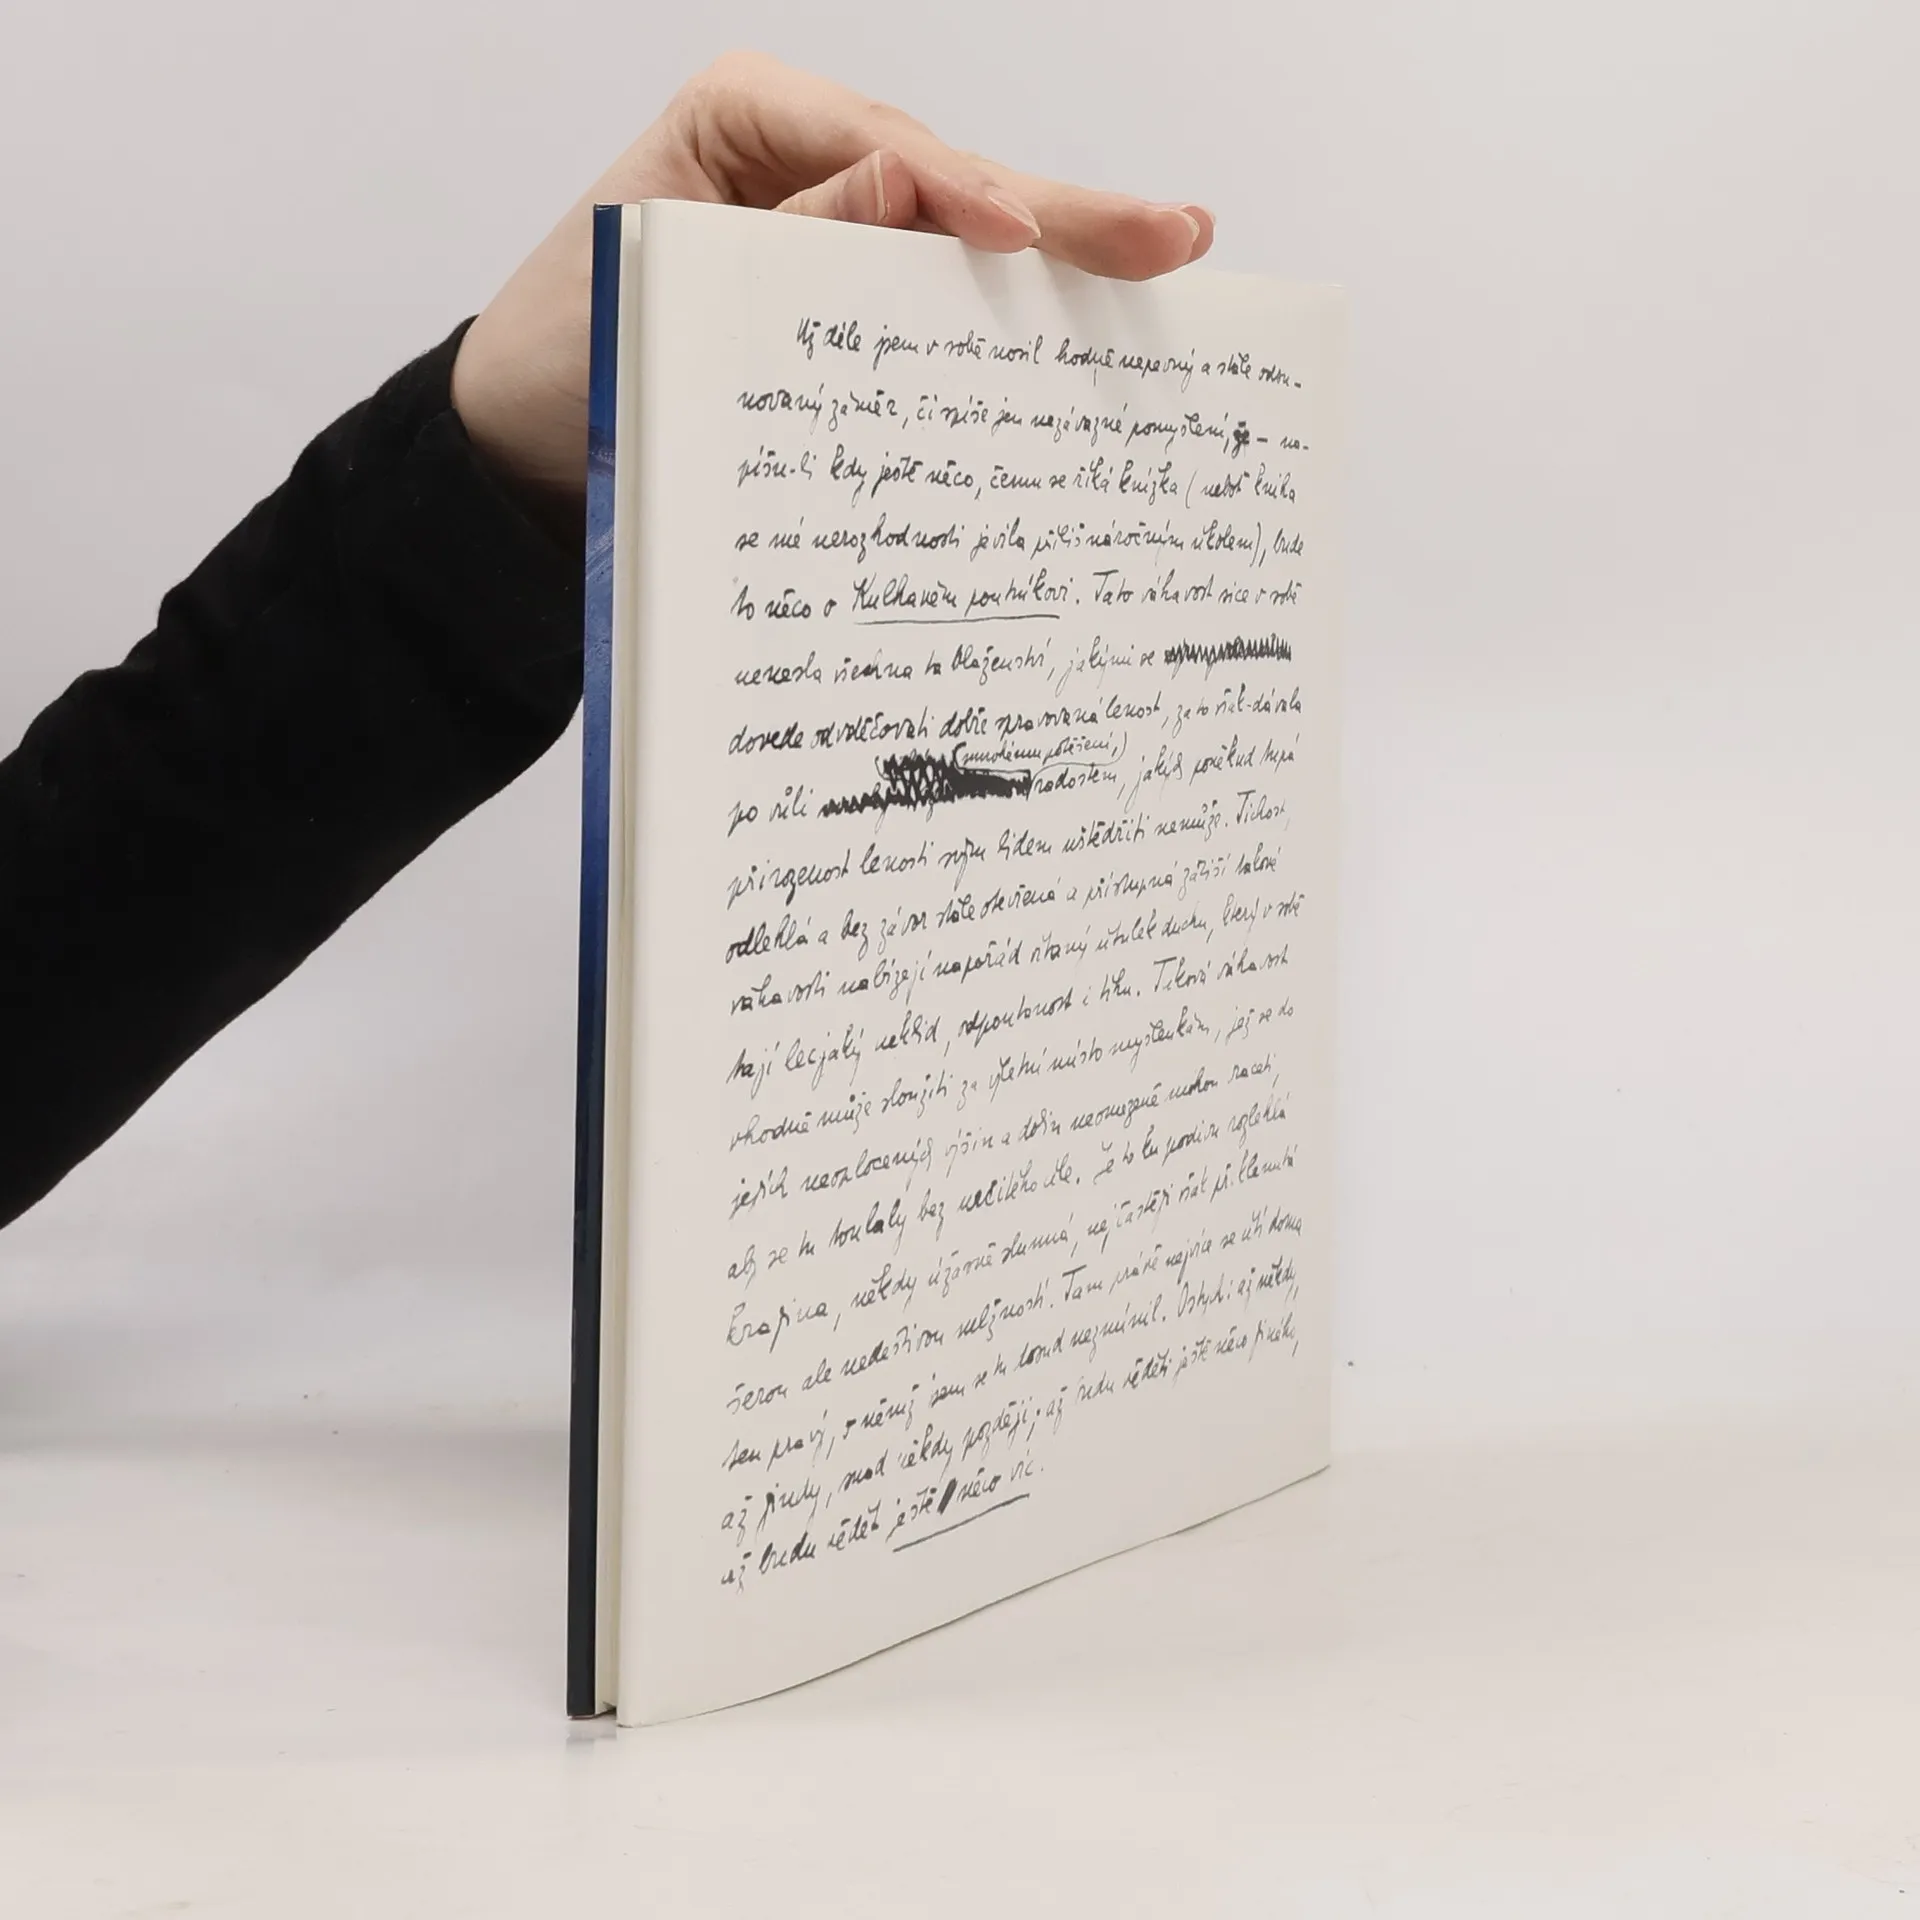 Už déle jsem v sobě nosil hodně nepevný a stále odsu-
novaný záměr, či spíše jen nezávazné pomyšlení, že – na-
píšu-li kdy ještě něco, čemu se říká knížka (neboť kniha
se mé nerozhodnosti jevila příliš náročným úkolem), bude
to něco o Kulhavém poutníkovi. Tato váhavost sice v sobě
nenesla všechna ta blaženství, jakými se
dovede odvděčovati dobře spravovaná lenost, za to však dávala
po vůli (mnohému potěšení,)
radostem, jakých poněkud tupá
přirozenost lenosti svým lidem uštědřiti nemůže. Tichost,
odlehlá a bez závor stále otevřená a přístupná zátiší takové
váhavosti nabízejí napořád vítaný útulek duchu, který v sobě
tají lecjaký neklid, odpoutanost i tíhu. Taková váhavost
vhodně může sloužiti za výletní místo myšlenkám, jež se do
jejích neozlocených výšin a dolin neomezeně mohou raceti,
aby se tu toulaly bez určitého cíle. Je to tu podivu rozlehlá
krajina, někdy úžasně slunná, nejčastěji však přiklenutá
šerou ale nedeštivou mlžností. Tam právě nejvíce se cítí doma
ten pravý, o němž jsem se tu dosud nezmínil. Ostych: až někdy,
až jindy, snad někdy později; až budu věděti ještě něco jiného,
až budu vědět ještě něco víc.